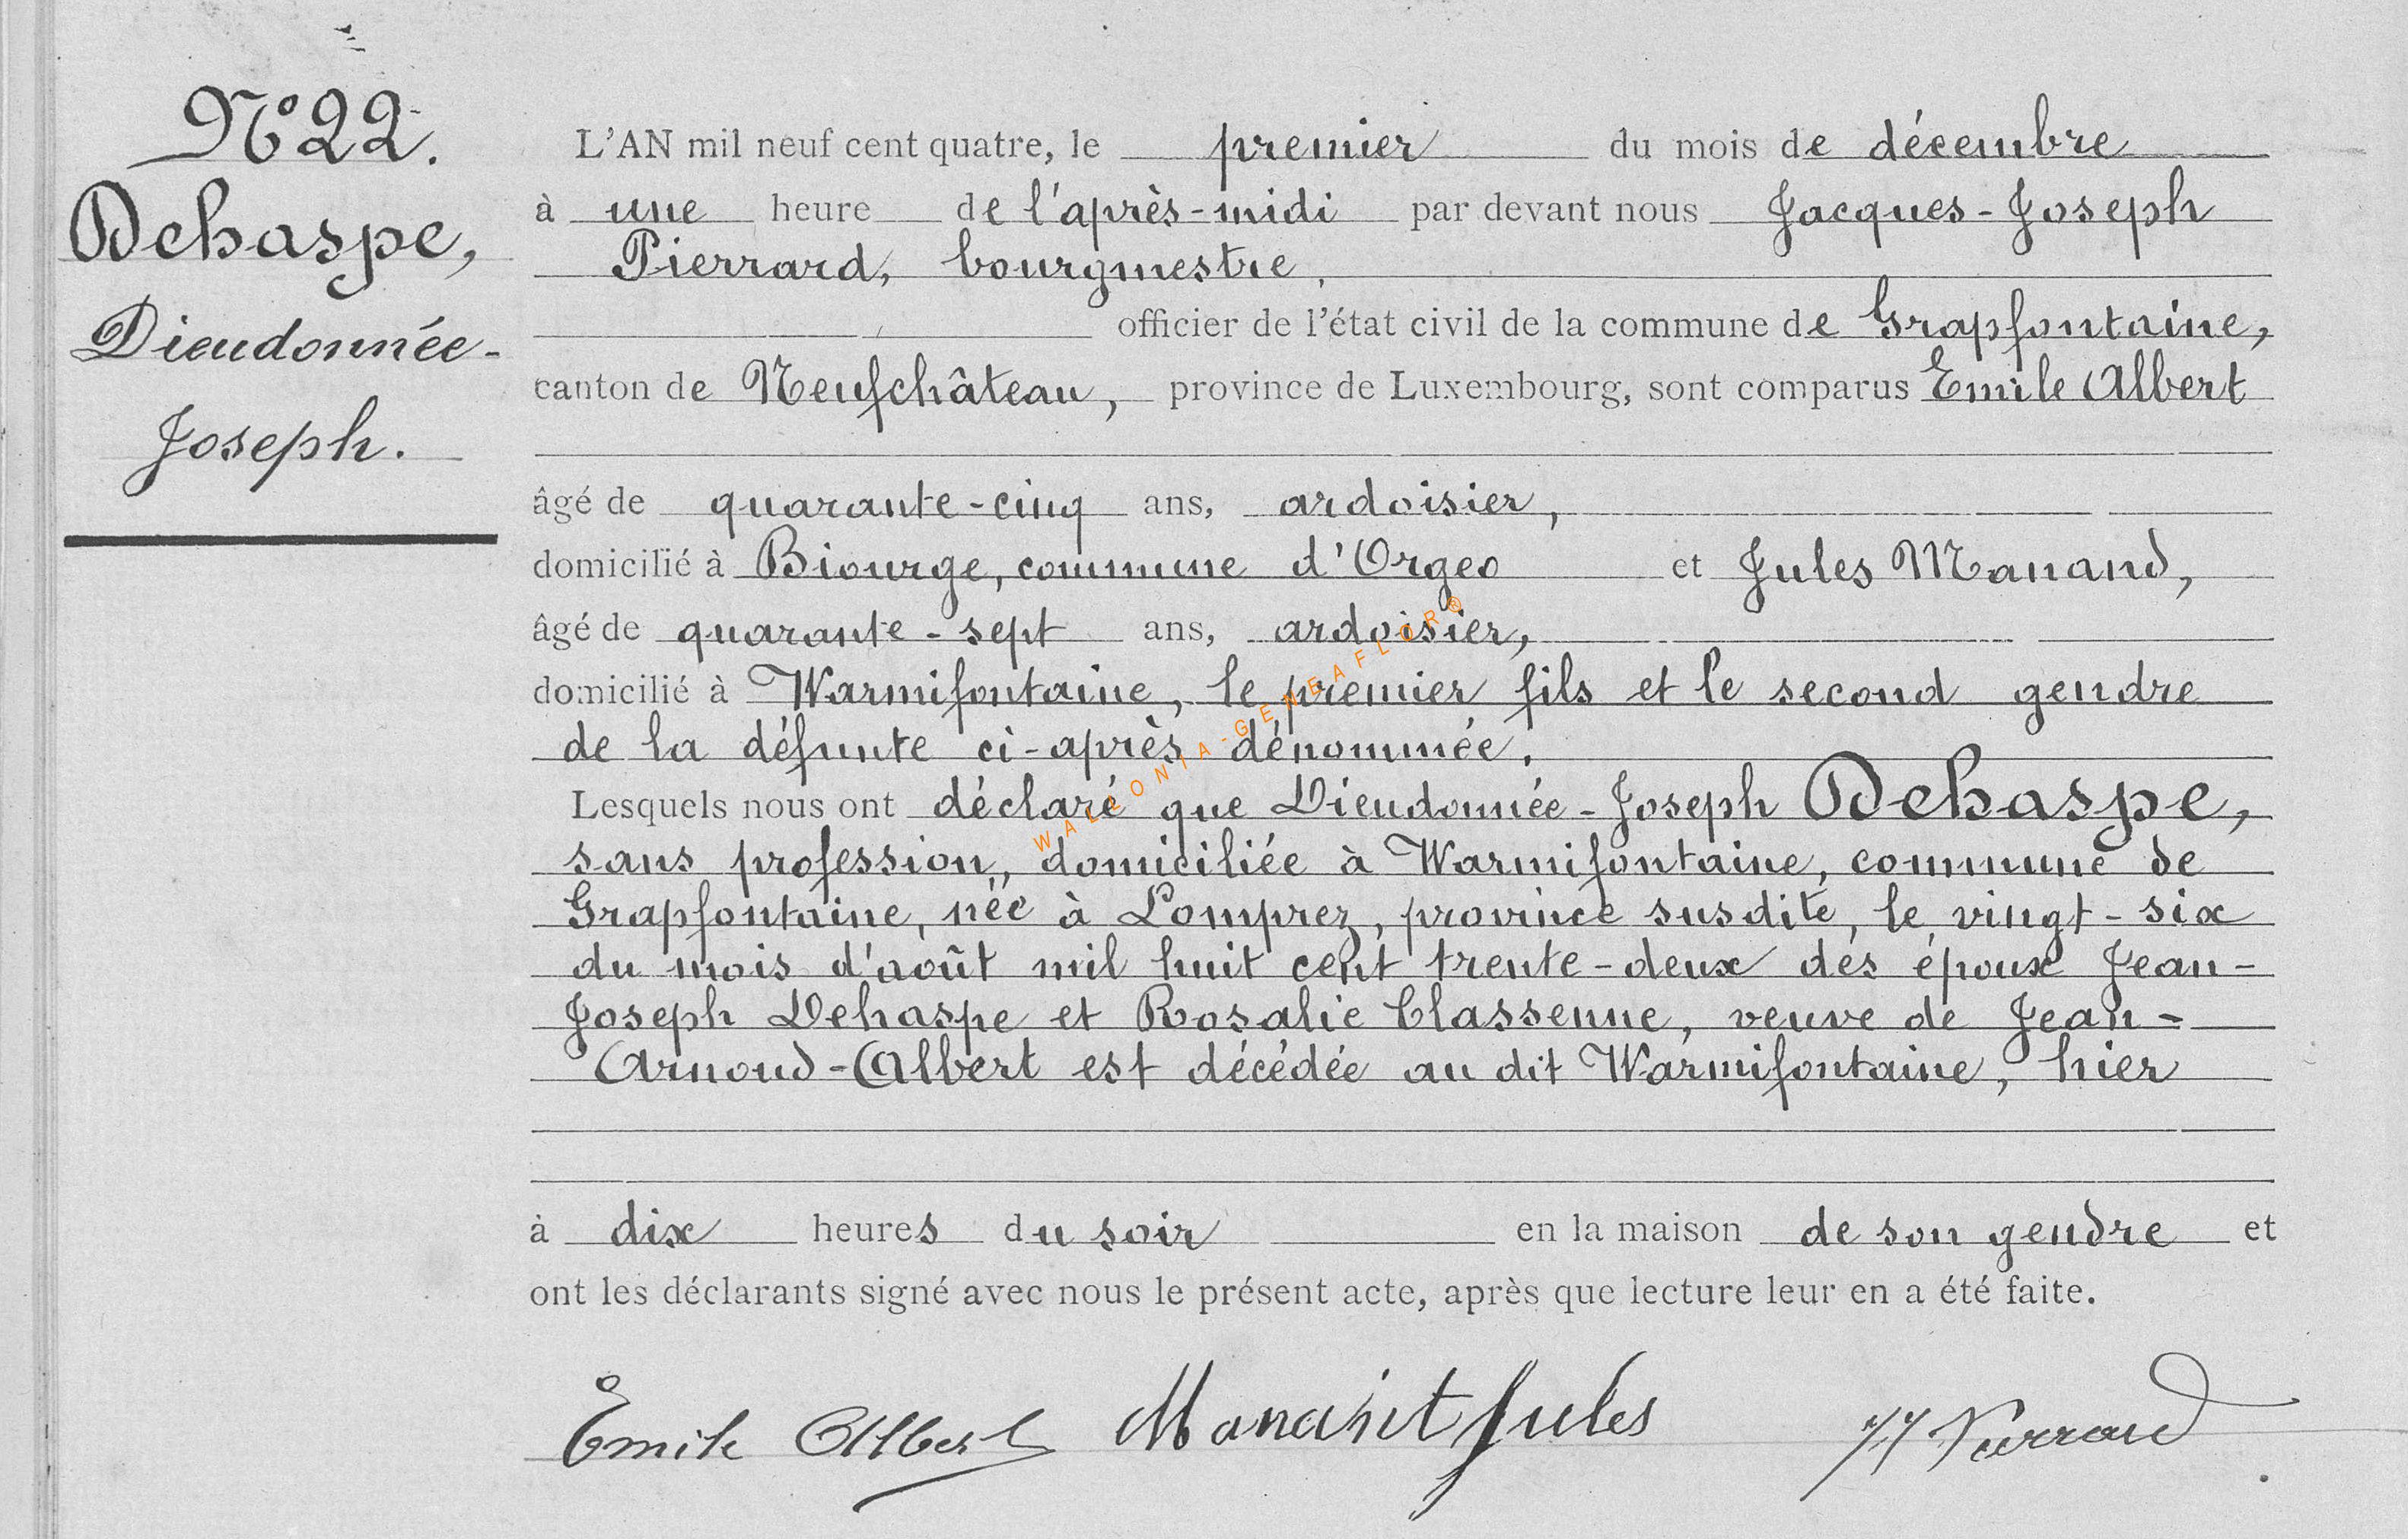 N° 22.
Dehaspe,
Dieudonnée-
Joseph.
L'AN mil neuf cent quatre, le premier du mois de décembre
à une heure de l'après-midi par devant nous Jacques-Joseph
Pierrard, bourgmestre,
officier de l'état civil de la commune de Grapfontaine,
canton de Neufchâteau, province de Luxembourg, sont comparus Emile Albert
âgé de quarante-cinq ans, ardoisier,
domicilié à Biourge, commune d'Orgeo et Jules Manand,
âgé de quarante-sept ans, ardoisier,
domicilié à Warmifontaine, le premier fils et le second gendre
de la défunte ci-après dénommée.
Lesquels nous ont déclaré que Dieudonnée-Joseph Dehaspe,
sans profession, domiciliée à Warmifontaine, commune de
Grapfontaine, née à Lomprez, province susdite, le vingt-six
du mois d'août mil huit cent trente-deux des époux Jean-
Joseph Dehaspe et Rosalie Classenne, veuve de Jean-
Arnoud-Albert est décédée au dit Warmifontaine, hier
à dix heures du soir en la maison de son gendre et
ont les déclarants signé avec nous le présent acte, après que lecture leur en a été faite.
Emile Albert Manant Jules JJ Pierrard
WALLONIA-GENEAFLOR®